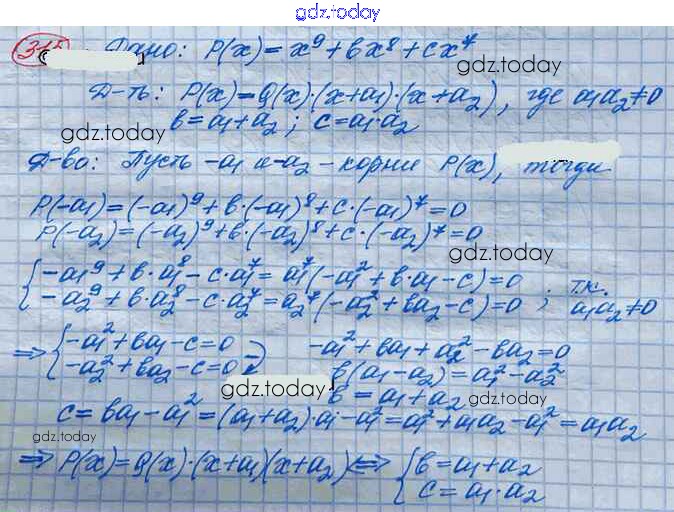 gdz.today
315 Дано: P(x) = x⁹ + bx⁸ + cx⁷
gdz.today
Д-ть: P(x) = Q(x)·(x+a₁)·(x+a₂), где a₁a₂≠0
b = a₁ + a₂; c = a₁·a₂
gdz.today
Д-во: Пусть -a₁ и -a₂ - корни P(x), тогда
P(-a₁) = (-a₁)⁹ + b·(-a₁)⁸ + c·(-a₁)⁷ = 0
P(-a₂) = (-a₂)⁹ + b·(-a₂)⁸ + c·(-a₂)⁷ = 0
gdz.today
{ -a₁⁹ + b·a₁⁸ - c·a₁⁷ = a₁⁷(-a₁² + b·a₁ - c) = 0 ; т.к.
-a₂⁹ + b·a₂⁸ - c·a₂⁷ = a₂⁷(-a₂² + ba₂ - c) = 0 a₁a₂≠0
⇒ { -a₁² + ba₁ - c = 0 -a₁² + ba₁ + a₂² - ba₂ = 0
-a₂² + ba₂ - c = 0 b(a₁ - a₂) = a₁² - a₂²
gdz.today
b = a₁ + a₂
gdz.today
c = ba₁ - a₁² = (a₁ + a₂)·a₁ - a₁² = a₁² + a₁a₂ - a₁² = a₁a₂
gdz.today
⇒ P(x) = Q(x)·(x+a₁)(x+a₂) ⇔ { b = a₁ + a₂
c = a₁·a₂
gdz.today